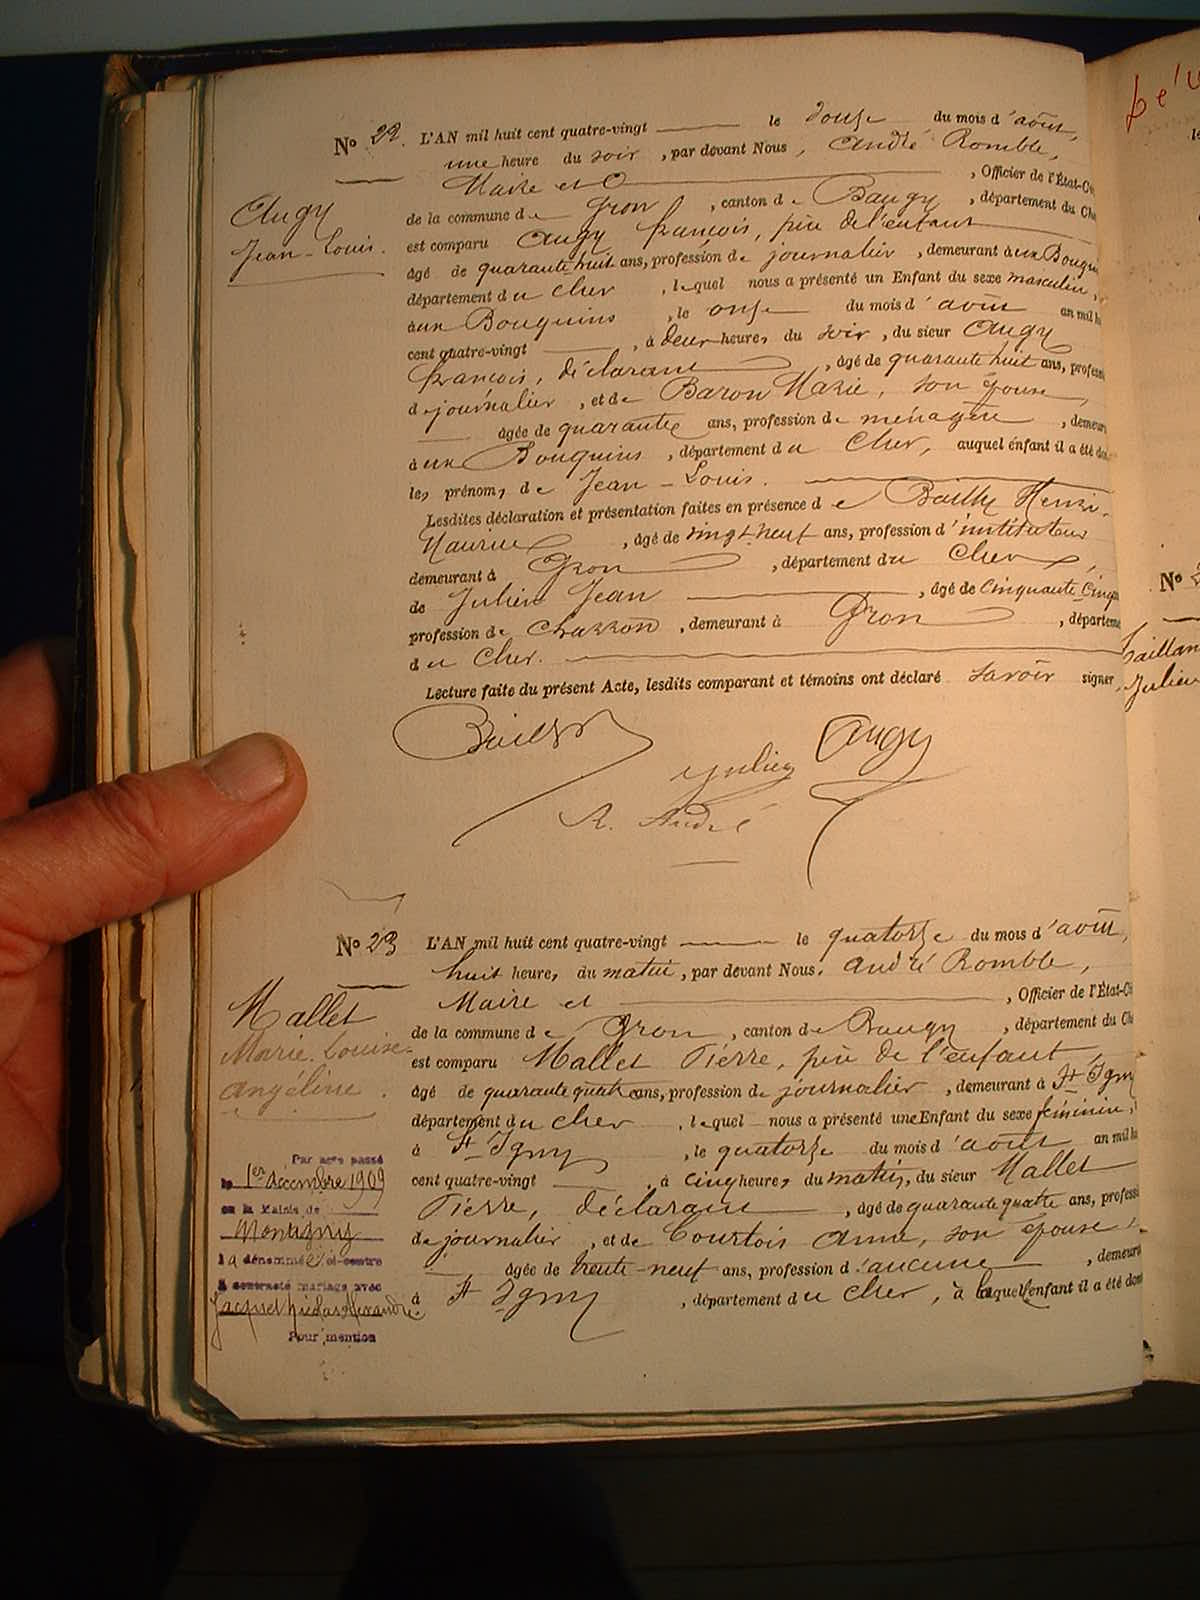 No 22. L'AN mil huit cent quatre-vingt ——— le douze du mois d'août,
une heure du soir, par devant Nous, André Romble,
Maire et ———, Officier de l'État-Ci
de la commune de Gron, canton de Baugy, département du Ch
est comparu Augy François, père de l'enfant
âgé de quarante huit ans, profession de journalier, demeurant à ux Bouquin
département du Cher, lequel nous a présenté un Enfant du sexe masculin,
à ux Bouquins, le onze du mois d'août an mil h
cent quatre-vingt ———, à deux heures du soir, du sieur Augy
François, déclarant ———, âgé de quarante huit ans, profess
de journalier, et de Baron Marie, son épouse,
âgée de quarante ans, profession de ménagère, demeur
à ux Bouquins, département du Cher, auquel enfant il a été do
les prénoms de Jean-Louis.
Lesdites déclaration et présentation faites en présence de Bailly Henri-
Maurice, âgé de vingt-neuf ans, profession d'instituteur
demeurant à Gron, département du Cher,
de Julien Jean ———, âgé de cinquante-cinq
profession de charron, demeurant à Gron, départeme
du Cher.
Lecture faite du présent Acte, lesdits comparant et témoins ont déclaré savoir signer
Augy
Jean-Louis.
Bailly Augy
Julien
R. André
No 23 L'AN mil huit cent quatre-vingt ——— le quatorze du mois d'août,
huit heures du matin, par devant Nous, André Romble,
Maire et ———, Officier de l'État-Ci
de la commune de Gron, canton de Baugy, département du Ch
est comparu Mallet Pierre, père de l'enfant
âgé de quarante quatre ans, profession de journalier, demeurant à St Igny
département du Cher, lequel nous a présenté une Enfant du sexe féminin,
à St Igny, le quatorze du mois d'août an mil h
cent quatre-vingt ———, à cinq heures du matin, du sieur Mallet
Pierre, déclarant ———, âgé de quarante quatre ans, profess
de journalier, et de Courtois Anne, son épouse
âgée de trente-neuf ans, profession d'aucune, demeura
à St Igny, département du Cher, à laquelle enfant il a été don
Mallet
Marie-Louise-
Angéline.
Par acte passé
le 1er décembre 1909
en la Mairie de
Montigny
la dénommée ci-contre
a contracté mariage avec
Jacquet Nicolas Alexandre.
Pour mention
No
Julien